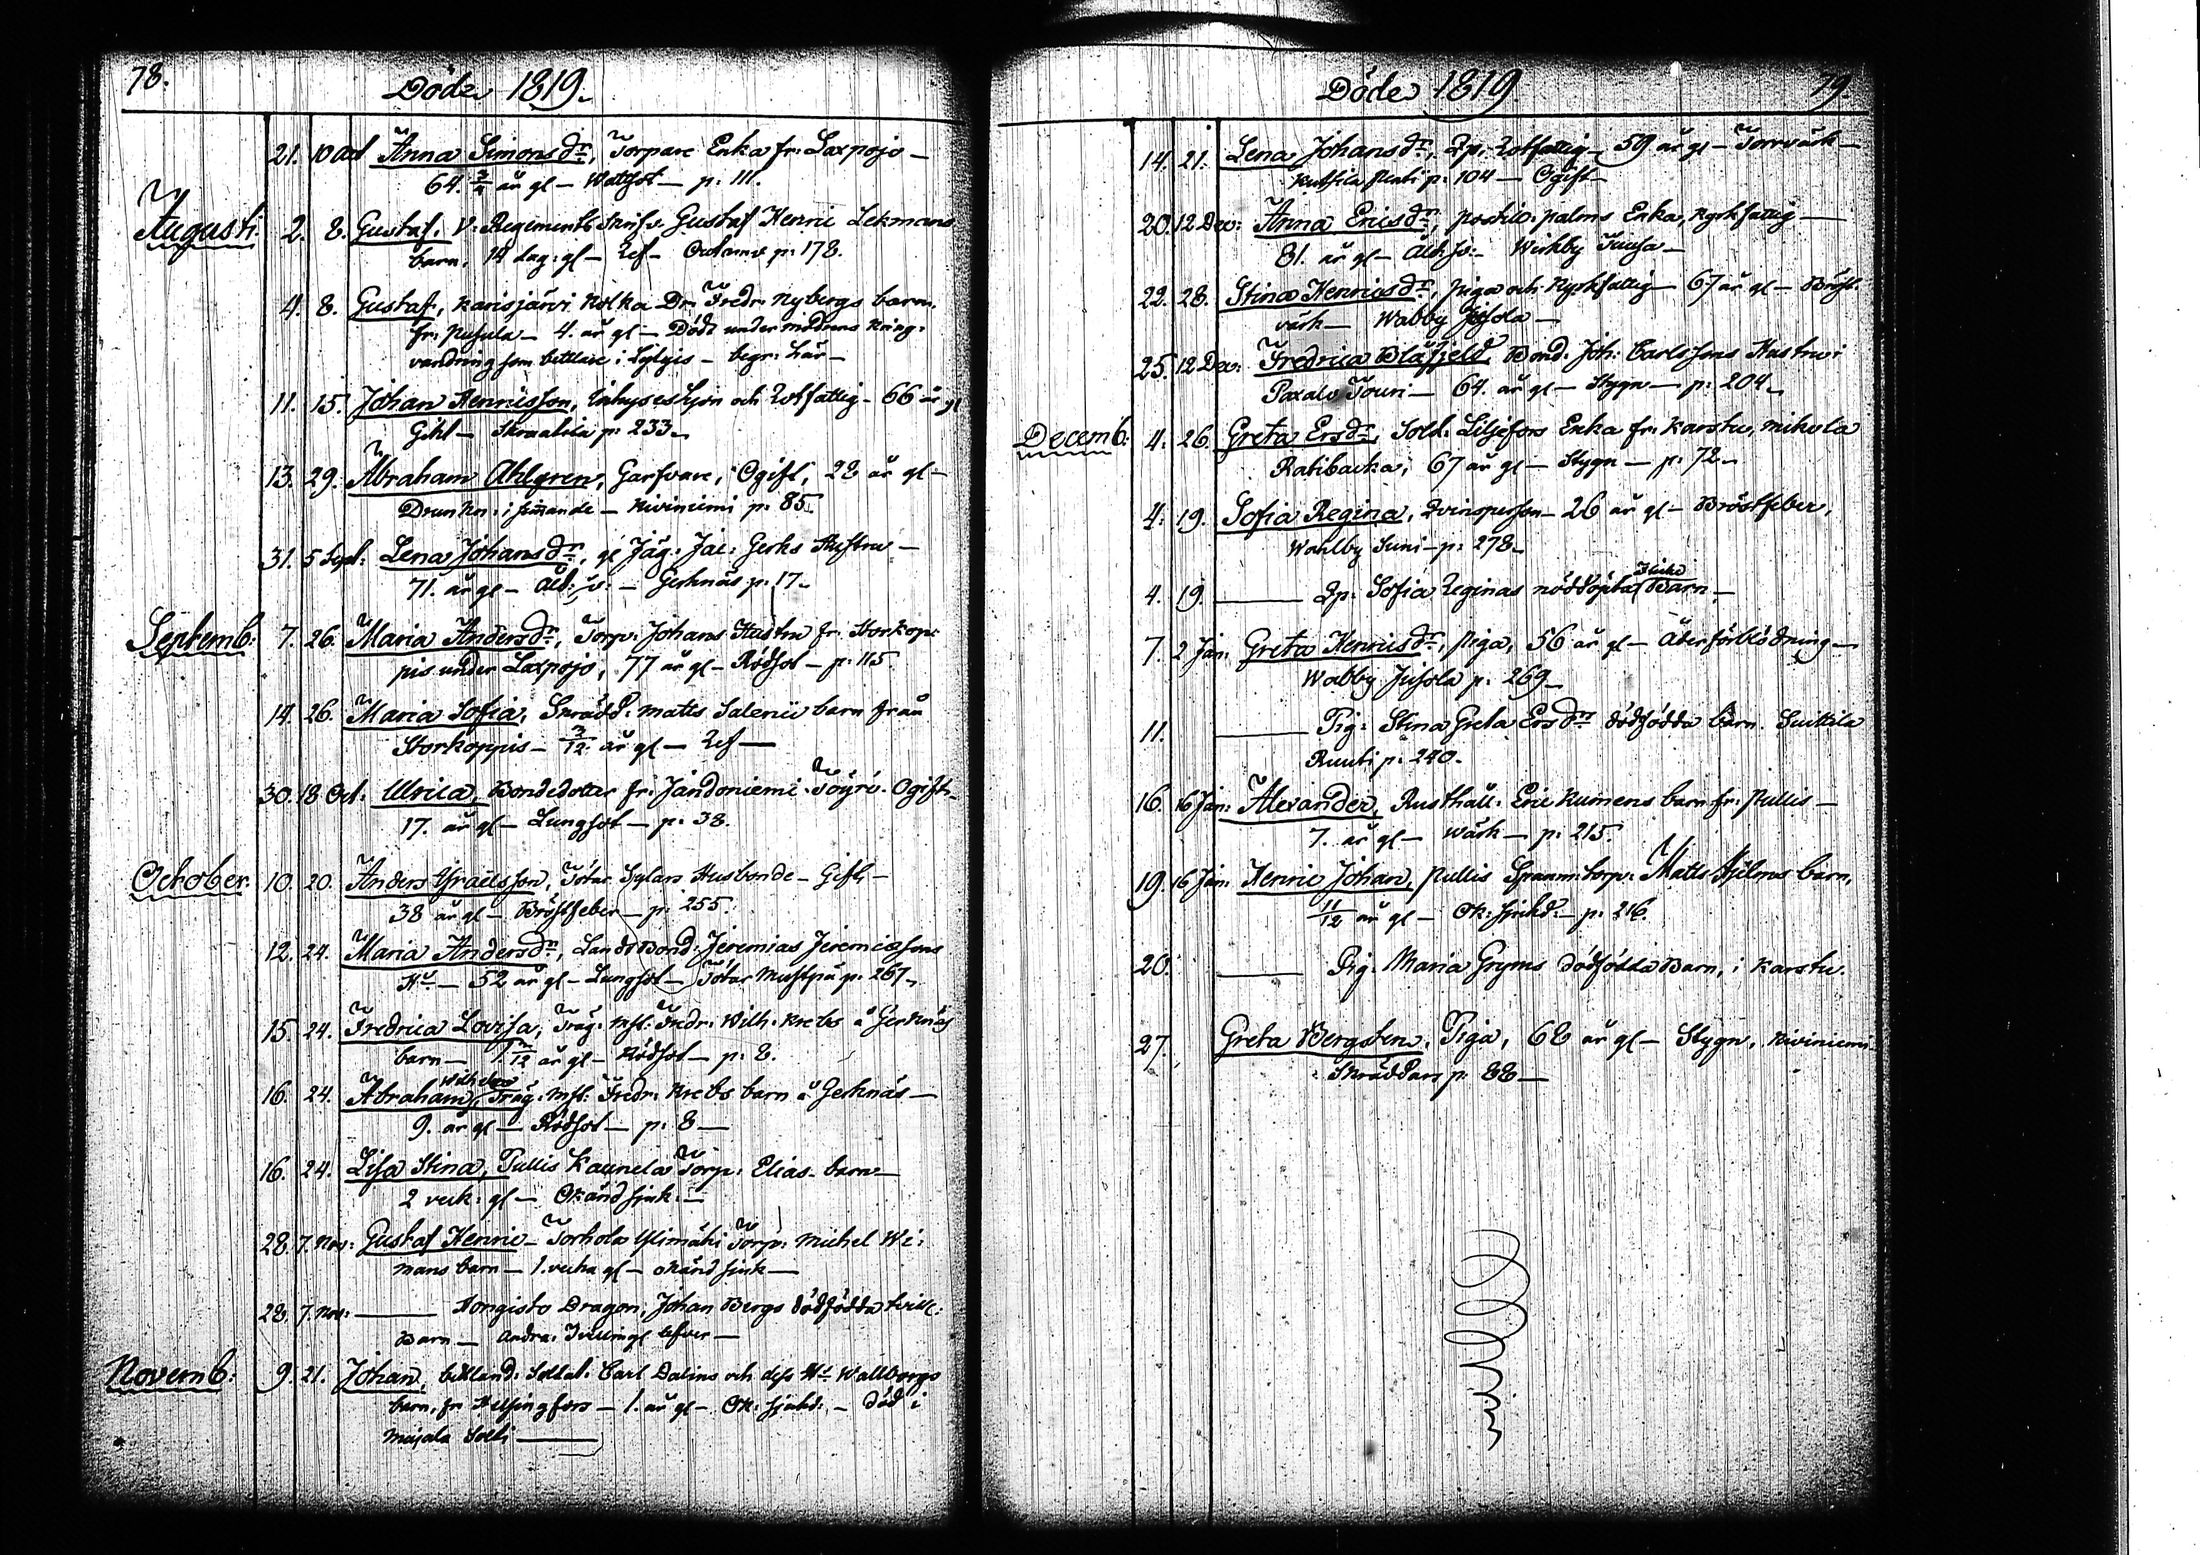 78.
Döde 1819.
21. 10 Anna Simonsdr, Torpare Enka fr. Laxpojo —
64. 3/4 år gl — Wattsot — p. 111.
Augusti. 2. 8. Gustaf. V. Regements Skrifv. Gustaf Henric Lekmans
barn. 14 dag. gl — p. 178.
4. 8. Gustaf, Karisjärvi Dr. Fredr. Nybergs barn.
fr. Pusula — 4. år gl — Döde under modrens kring-
vandring som bettlare i — begr. här —
11. 15. Johan Henrisson, Inhyseshjon och Rotfattig — 66 år gl
Gikt — p. 233.
13. 29. Abraham Ahlgren, Garfvare, Ogift, 28 år gl —
Drunkn. i simmande — Kiviniemi p. 85.
31. 5 Sept: Lena Johansdr, gl Jäg. Jac. Gerks Hustru —
71. år gl — Åld. — Gerknäs p. 17.
Septemb: 7. 26. Maria Andersdr, Torp. Johans Hustru fr. Storkop-
pis under Laxpojo, 77 år gl — Rödsot — p. 115.
14. 26. Maria Sofia, Skrädd. Matts Salenii barn från
Storkoppis — 3/12 år gl —
30. 18 Oct: Ulrica, Bondedotter fr. Jändoniemi Töyri. Ogift.
17. år gl — Lungsot — p. 38.
October. 10. 20. Anders Israelsson, Tötar Husbonde — Gift —
38 år gl — Bröstfeber — p. 255.
12. 24. Maria Andersdr, LandsBond. Jeremias Jeremiassons
Hu — 52 år gl — Lungsot — Tötar p. 267.
15. 24. Fredrica Lovisa, Träg. mst. Fredr. Wilh. Krebs å Gerknäs
barn — år gl — Rödsot — p. 8.
Wilhelm
16. 24. Abraham, Träg. mst. Fredr. Krebs barn å Gerknäs —
9. år gl — Rödsot — p. 8 —
16. 24. Lisa Stina, Pullis Kaunela Torp. Elias barn —
2 veck. gl — Okänd sjuk. —
28. 7. Nov: Gustaf Henric — Torhola Ylimäki Torp. Michel Wi-
mans barn — 1. vecka gl — okänd sjuk —
28. 7. Nov: — Hongisto Dragon, Johan Bergs dödfödda tvill.
Barn — Andra Tvillingl lefver —
Novemb: 9. 21. Johan, Soldat. Carl Dalins och dess Hu Wallborgs
barn, fr Helsingfors — 1. år gl — Ok. sjukd. — död i
79.
Döde 1819
14. 21. Lena Johansdr, Qp. Rotfattig — 59 år gl — Torrvärk —
p. 104 — Ogift
20. 12 Dec: Anna Ericsdr, Palms Enka, Kyrkfattig —
81. år gl — Åld. — Wichby —
22. 28. Stina Henricsdr, Piga och Kyrkfattig — 67 år gl — Bröst-
värk — Wabby Jusola —
25. 12 Dec: Fredrica Blåfjeld Bond. Joh. Carlssons Hustru i
Paxalo Touri — 64. år gl — Stygn — p. 204.
Decemb: 4. 26. Greta Ersdr, Sold. Liljefors Enka fr. Karstu, Mikola
Ratibacka, 67 år gl — Stygn — p. 72.
4. 19. Sofia Regina, Qvinsperson — 26 år gl — Bröstfeber,
Wohlby Suni — p. 278.
4. 19. — Qp. Sofia Reginas nöddöpta Flicko Barn —
7. 2 Jan: Greta Henricsdr, Piga, 56 år gl — Åderförblödning —
Wabby Jusola p. 269.
11. — Pig. Stina Greta Ersdr dödfödda barn. Suittila
Ruuti p. 240.
16. 16 Jan: Alexander, Rusthåll. Eric Kumens barn fr. Pullis —
7. år gl — Wärk — p. 215.
19. 16 Jan: Henric Johan, Pullis Spannm. torp. Matts Hjelms barn,
11/12 år gl — Ok. sjukd. — p. 216.
20. — Pig. Maria Gryms dödfödda Barn, i Karstu.
27. Greta Bergsten, Piga, 68 år gl — Stygn, Kiviniemi
Skräddars p. 88 —